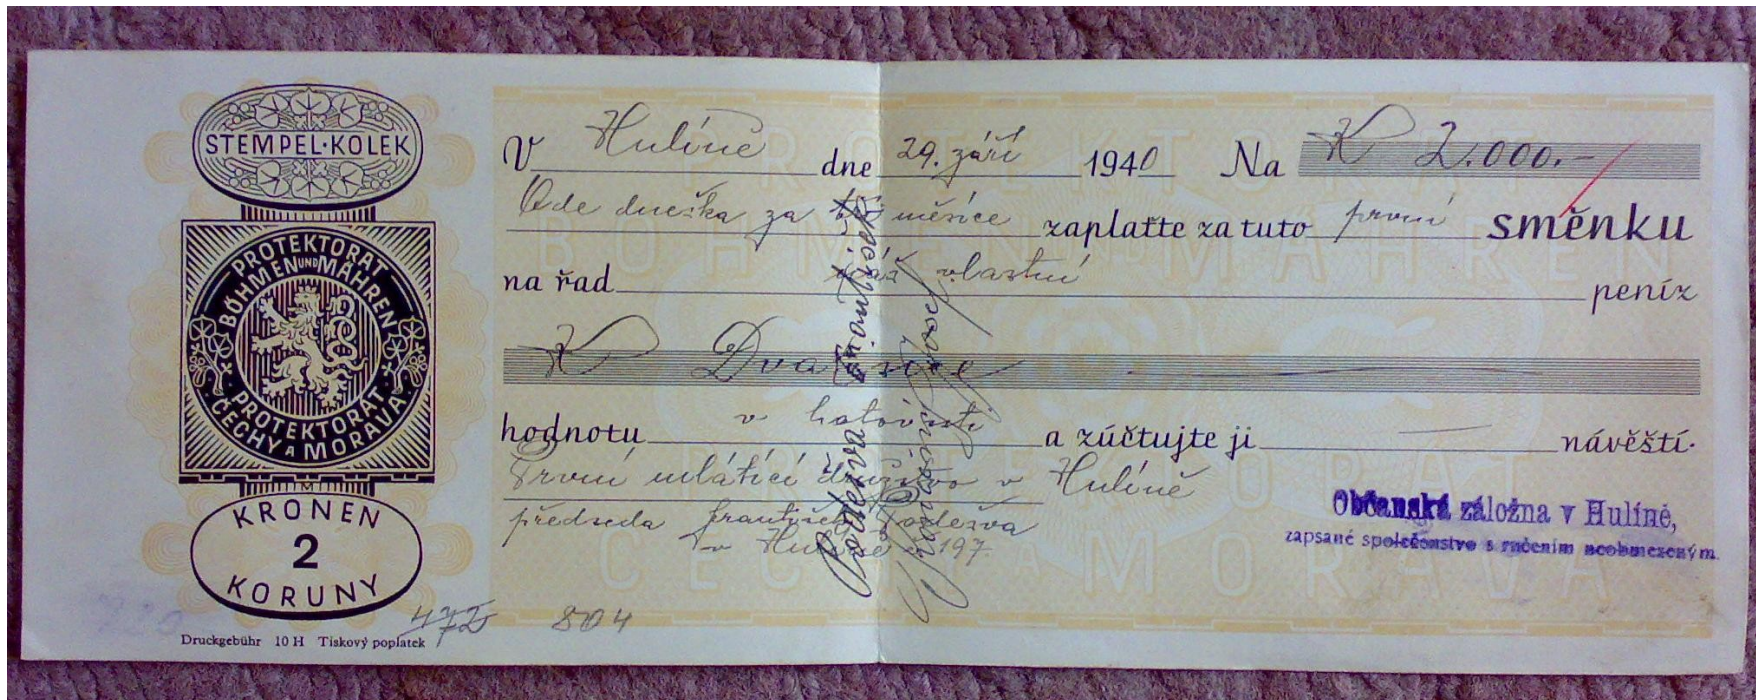 STEMPEL·KOLEK
PROTEKTORAT
BÖHMEN UND MÄHREN
PROTEKTORÁT
ČECHY A MORAVA
KRONEN
2
KORUNY
Druckgebühr 10 H Tiskový poplatek
472 804
V Hulíně dne 29. září 1940 Na K 2.000.-
Ode dneška za tři měsíce zaplaťte za tuto první směnku
na řad vlastní peníz
K Dva tisíce
hodnotu v hotovosti a zúčtujte ji — návěští.
První mlátící družstvo v Hulíně
předseda František Poděrva
v Hulíně č 197.
Občanská záložna v Hulíně,
zapsané společenstvo s ručením neobmezeným.
PROTEKTORAT
BÖHMEN UND MÄHREN
PROTEKTORÁT
ČECHY A MORAVA
František